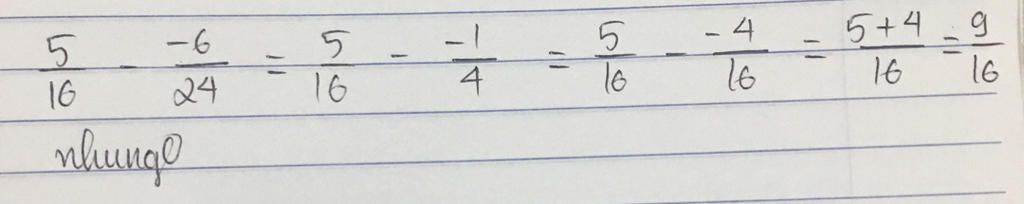 5/16 - -6/24 = 5/16 - -1/4 = 5/16 - -4/16 = 5+4/16 = 9/16
nhung0